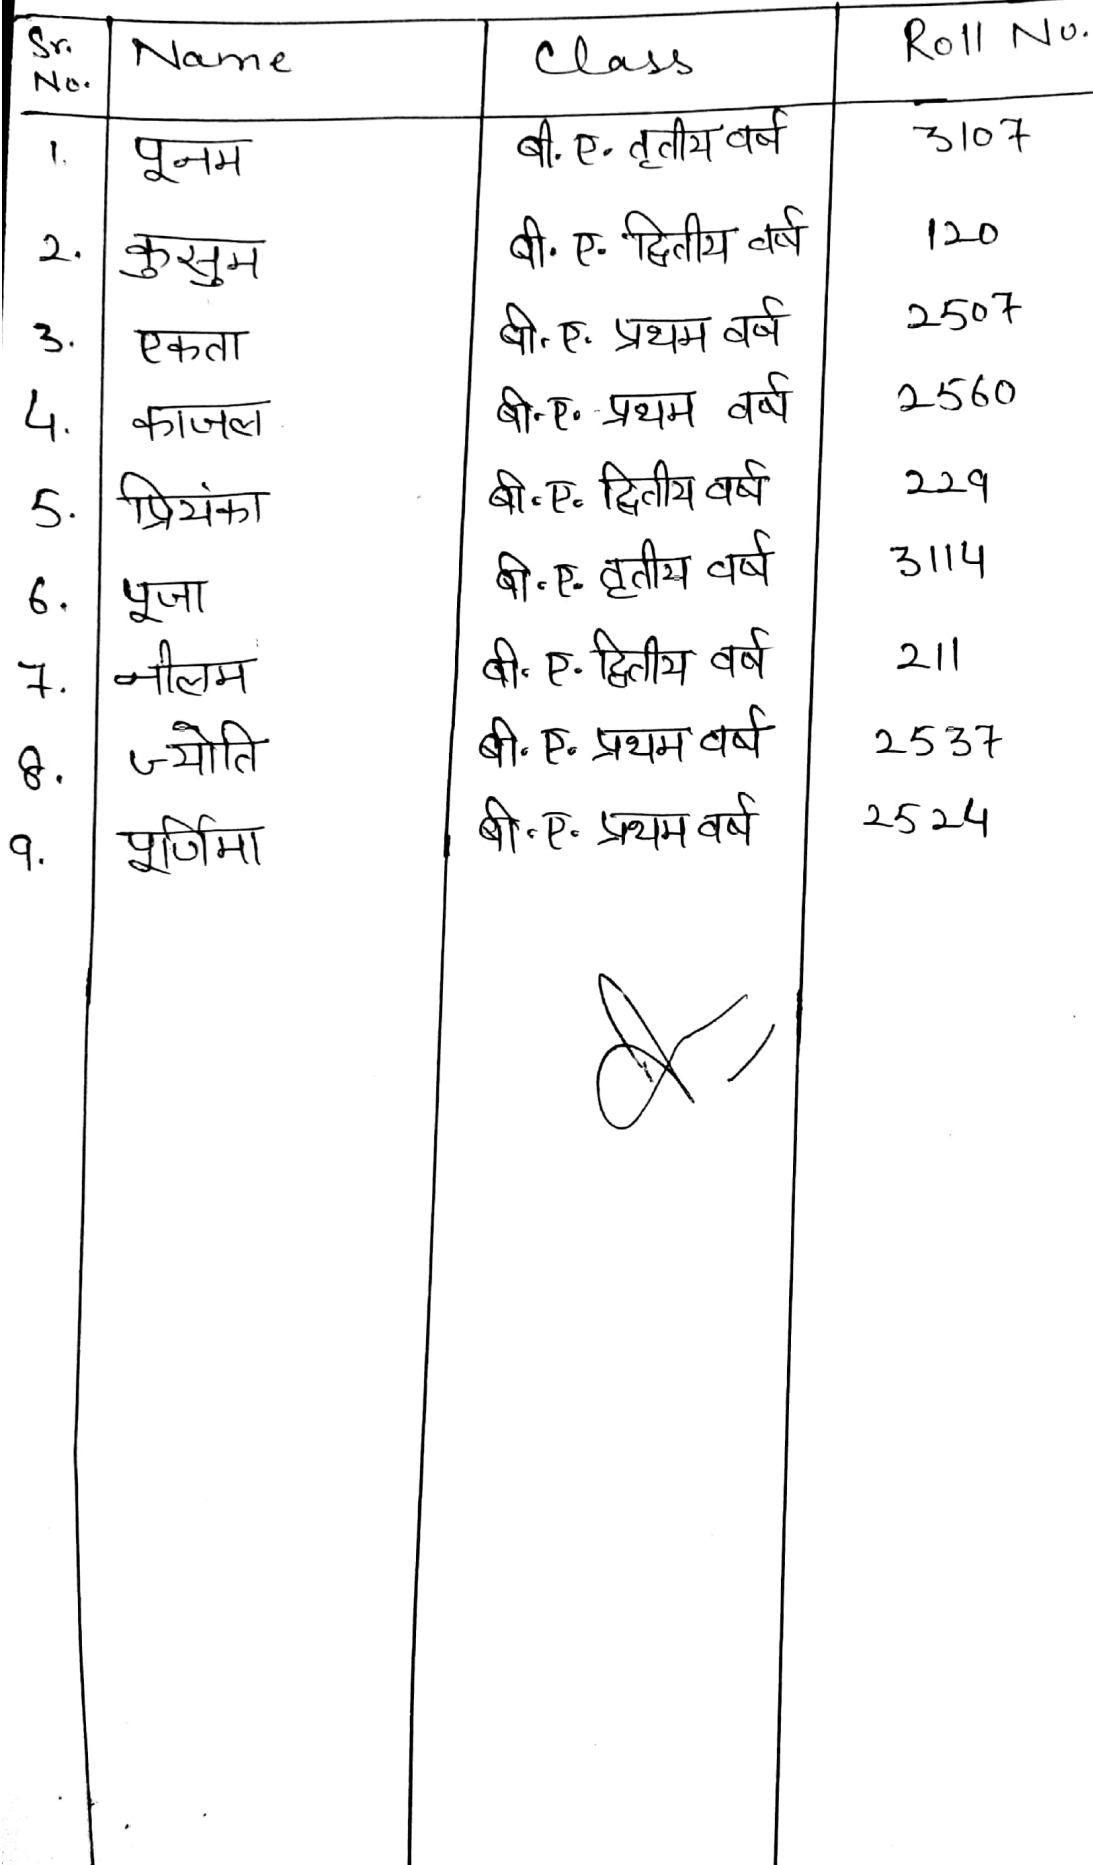 Sr. No. Name Class Roll No.
1. पूनम बी. ए. तृतीय वर्ष 3107
2. कुसुम बी. ए. द्वितीय वर्ष 120
3. एकता बी. ए. प्रथम वर्ष 2507
4. काजल बी. ए. प्रथम वर्ष 2560
5. प्रियंका बी. ए. द्वितीय वर्ष 229
6. पूजा बी. ए. तृतीय वर्ष 3114
7. नीलम बी. ए. द्वितीय वर्ष 211
8. ज्योति बी. ए. प्रथम वर्ष 2537
9. पूर्णिमा बी. ए. प्रथम वर्ष 2524